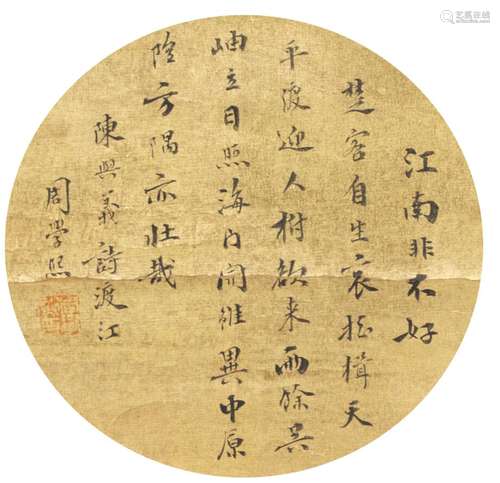 江南非不好
楚客自生哀搖楫天
平渡迎人樹欲来雨餘吳
岫立日照海门開雖異中原
險方隅亦壯哉
陳與義詩渡江
周學熙
艺狐在线